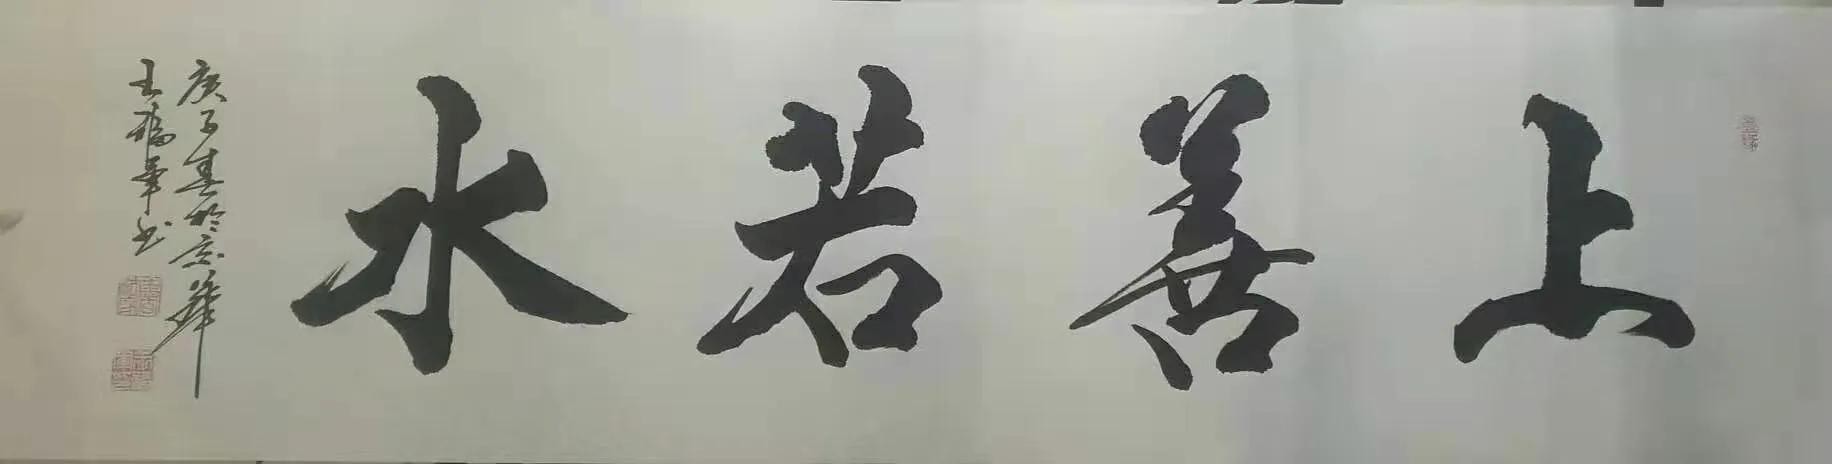 上善若水
庚子春於京華
王福華书